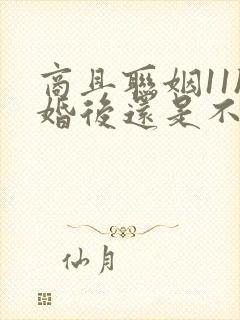 商且聯姻11
婚後還是不
仙月